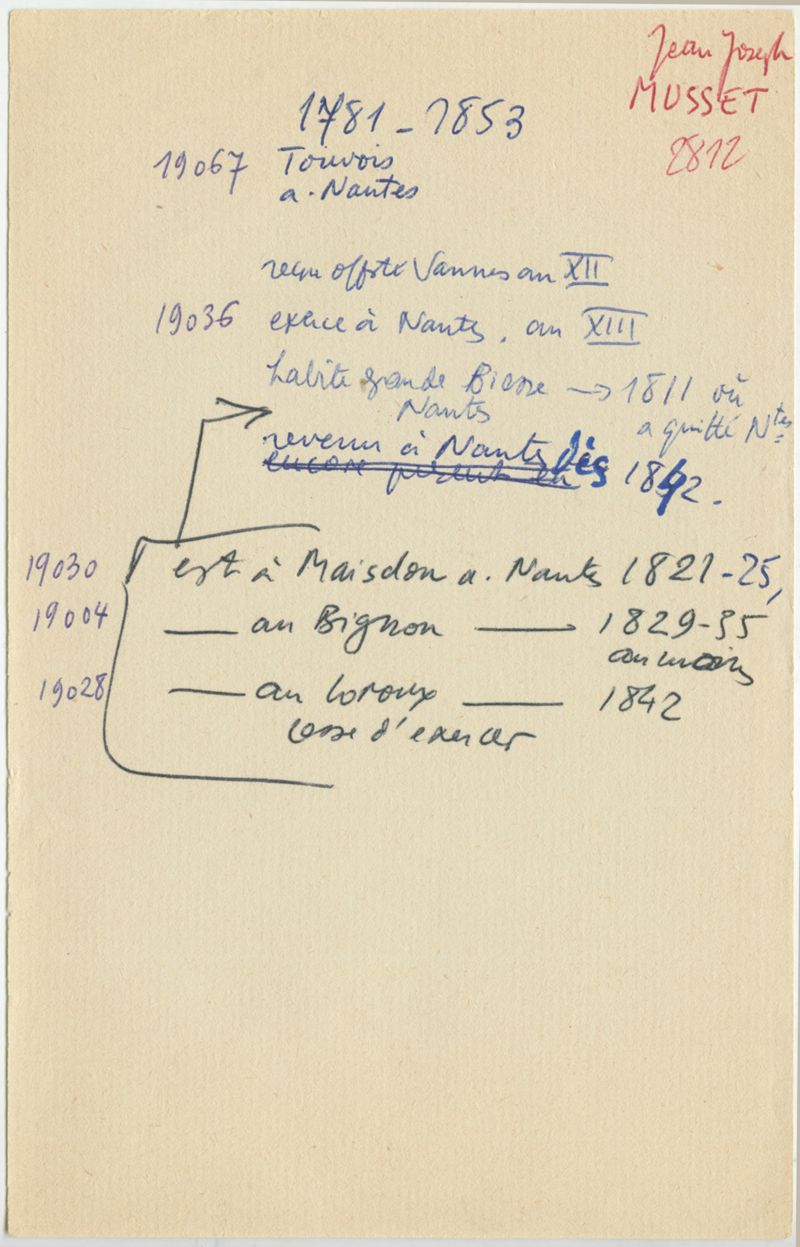 Jean Joseph
MUSSET
2812
1781 - 1853
19067 Touvois
a. Nantes
reçu offsté Vannes an XII
19036 exerce à Nantes, an XIII
habite grande Biesse → 1811 où
Nantes a quitté Ntes
revenu à Nantes dès 1842.
encore présent en
19030 est à Maisdon a. Nantes 1821-25,
19004 — au Bignon — 1829-35
au moins
19028 — au Loroux — 1842
cesse d'exercer